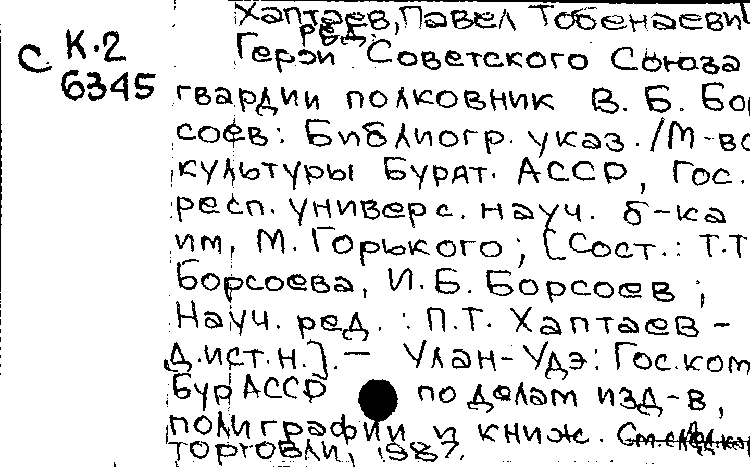 Хаптаев, Павел Тобенаеви
ред.
С К.2 Герои Советского Союза
6345 гвардии полковник В. Б. Бор
соев: Библиогр. указ. / М-во
культуры Бурят. АССР, Гос.
респ. универс. науч. б-ка
им. М. Горького; [Сост.: Т.Т
Борсоева, И. Б. Борсоев;
Науч. ред.: П.Т. Хаптаев -
д.ист.н.]. — Улан-Удэ: Гос.ком
БурАССР по делам изд-в,
полиграфии и книж.
торговли, 1987.